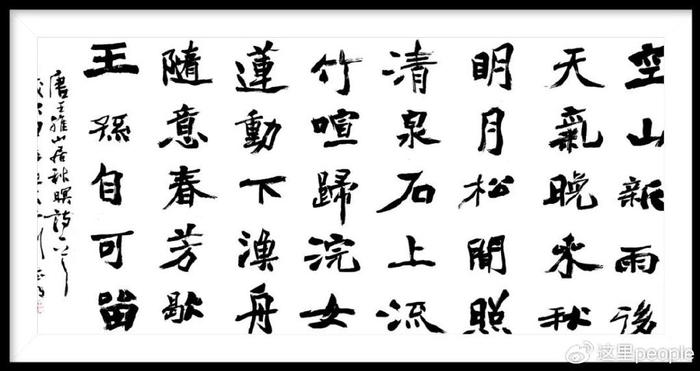 空山新雨後
天氣晚来秋
明月松間照
清泉石上流
竹喧歸浣女
蓮動下漁舟
隨意春芳歇
王孫自可留
唐王維山居秋暝詩一首
@这里people